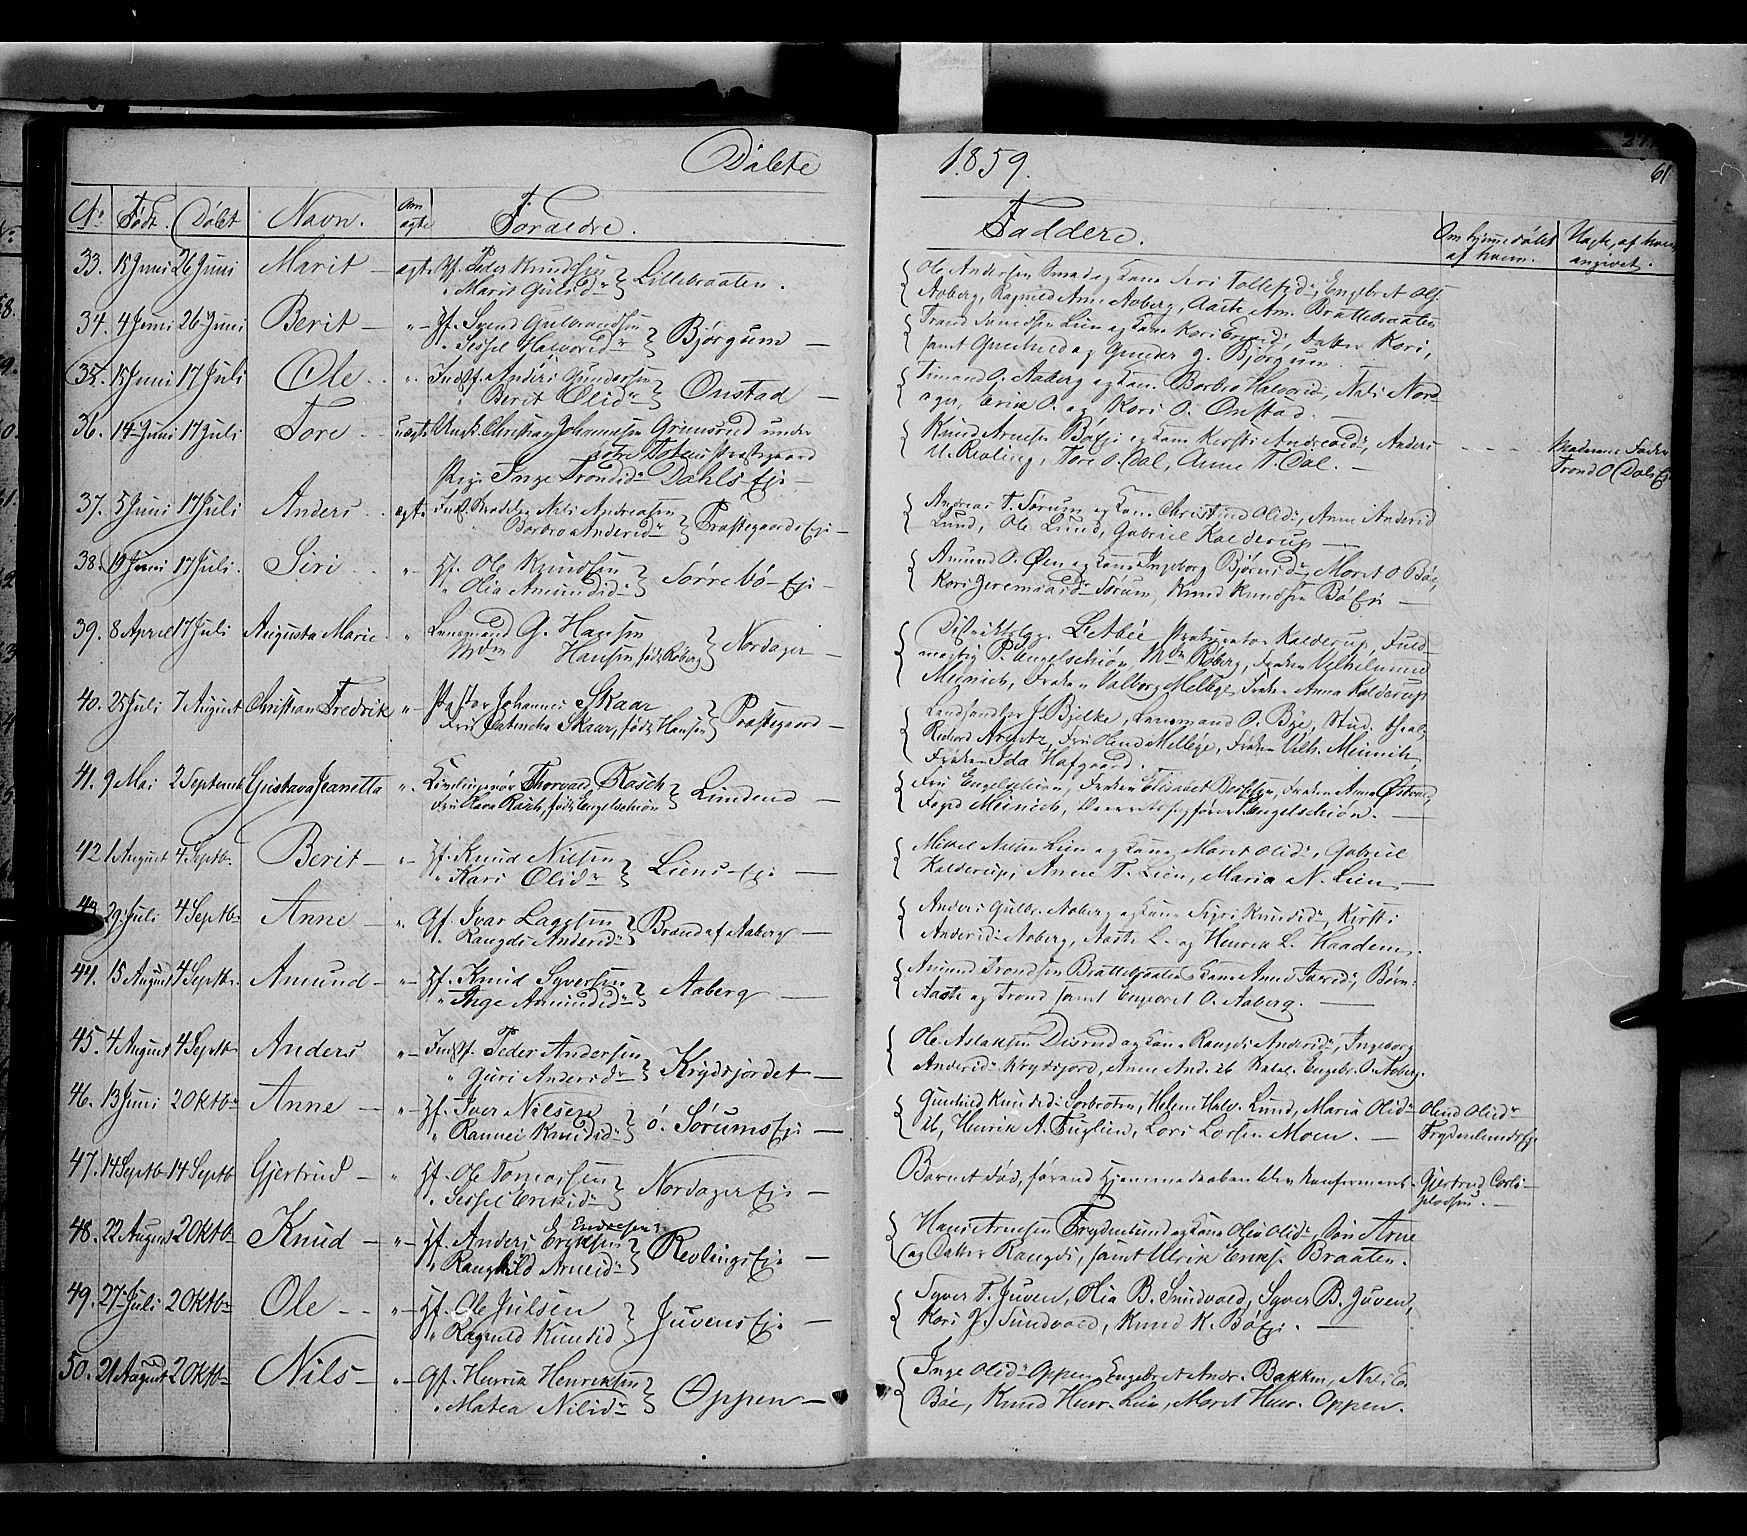 Døbte
1859.
61
No Født. Døbt Navn. Om ægte Forældre.
Faddere. Om hjemmedøbt af hvem. Uægte, af hvem angivet.
33. 15 Juni 26 Juni Marit – ægte Hf. Peder Knudsen
" Marit Gulid } Lillebraaten.
Ole Andersen Kone Siri Tollefsd., Engebret Ols.
Aaberg, Ragnild Aaberg, Aaste Am. Brattebraaten
34. 4 Juni 26 Juni Berit – " Hf. Svend Gulbrandsen
" Sissel Halvorsd } Bjørgum –
Trond Lien og Kone Kari datter Kari,
samt Gunhild og Gunder G. Bjørgum.
35. 15 Juni 17 Juli Ole " Inds. Anders Gundersen
Berit Olsd } Onstad –
O. Aaberg og Kone Barbro Halvorsd, Nils Nord-
ager, Erik O. og Kari O. Onstad.
36. 14 Juni 17 Juli Tore uægte Ungk. Christian Johannesen Grimsrud under
østre Totens Præstegaard
Pige Inge Trondsd Dahls Eje –
Knud Arnesen Bø Eje og Kone Kjersti Andreasd, Anders
U. Revling, Tore O. Dal, Anne T. Dal. –
Moderens Fader
Trond O Dals Eje
37. 5 Juni 17 Juli Anders ægte Inds. Nils Andreasen
Barbro Andersd } Præstegaards Eje –
Andreas T. Sørum og Kone Christine Olsd, Anne Andersd
Lund, Ole Lund, Gabriel Kalderup –
38. 19 Juni 17 Juli. Siri " Hf. Ole Knudsen
" Olia Amundsd } Sørre Bø Eje –
Amund O. Øen og Kone Ingeborg Bjørnsd, Marit O Bøe,
Kari Sørum, Knud Knudsen Bø Eje –
39. 8 April 17 Juli Augusta Marie " Lensmand G. Hansen
Mdm Hansen født Røberg } Nordager –
Distriktslæge L. Abée, Prokurator Kalderup, Fuld-
mægtig P. Engelschiøn, Mdm Røberg, Frøken Vilhelmine
Meinich, Frøken Valborg Mellbye, Frøken Anna Kalderup
40. 25 Juli 7 August Christian Fredrik " Pastor Johannes Skaar
Fru Cathinka Skaar, født Hansen } Præstegaard –
Landhandler J. Bjelke, Lensmand O. Bye, Stud. theol.
Richard Arentz, Fru Mellbye, Frøken Vilh. Meinich,
Frøken Ida Hofgaard.
41. 9 Mai 2 Septemb Gustava Jeanetta " Thorvald Rasch
Fru Rasch, født Engelschiøn } Linderud –
Fru Engelschiøn, Frøken Elisabet Frøken Anna
Foged Meinich, Engelschiøn. –
42 1 August 4 Septb. Berit – " Hf. Knud Nielsen
" Kari Olsd } Liens Eje –
Mikkel Lien og Kone Marit Olsd, Gabriel
Kalderup, Anne T. Lien, Maria N. Lien –
43 29 Juli 4 Septb Anne – " Gf. Ivar Lagesen
" Rangdi Andersd } Brend af Aaberg –
Anders Gulbr. Aaberg og Kone Sigri Knudsd, Kirsti
Andersd Aaberg, Aaste L. og Henrik L. Haadem.
44. 15 August 4 Septb. Amund – " Hf. Knud Syversen
" Inge Amundsd } Aaberg –
Amund Trondsen Brattebraaten Kone Anne Børn:
Aaste og Trond samt Engebret O. Aaberg. –
45. 4 August 4 Septb Anders " Inds. Peder Andersen
" Guri Andersd } Krydsjordet –
Ole Aslaksen Disrud og Kone Rangdi Andersd, Ingeborg
Andersd Krydsjord, Anne And. ib Engebr. O. Aaberg.
46. 13 Juni 2 Oktb. Anne – " Hf. Iver Nilsen
" Rannei Knudsd } ø. Sørums Eje –
Gunhild Knudsd Sørbrøten, Helene Halv. Lund, Maria Olsd
ib, Henrik A. Fuglien, Lars Larsen Moen. –
Olsd
Frydenlunds Eje
47. 14 Septb 14 Septb Gjertrud – " Hf. Ole Tomassen
" Sissel Eriksd } Nordager Eje –
Barnet død, førend Hjemmedaaben blev konfirmeret.
Gjertrud Carls-
48. 22 August 2 Oktb Knud – " Hf. Anders Eriksen Endresen
" Ranghild Arnesd } Revlings Eje –
Hans Arnesen Frydenlund og Kone Olia Olsd, Søn Arne
og Datter Rangdi, samt Ulrik Eriks. Braaten.
49. 27 Juli 2 Oktb Ole – " Hf. Ole Julsen
" Ragnild Knudsd } Juvens Eje –
Syver T. Juven, Olia B. Sundvold, Syver B. Juven,
Kari J. Sundvold, Knud K. Bø Eje. –
50. 21 August 2 Oktb Nils – " Gf. Henrik Henriksen
" Matea Nilsd } Oppen –
Inge Olsd Oppen, Engebret Andr. Bakken, Nils E.
Bøe, Knud Henr. Lien, Marit Henr. Oppen.